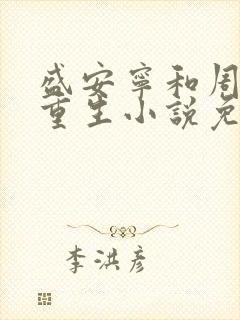 盛安寧和周
重生小說免
李洪彥